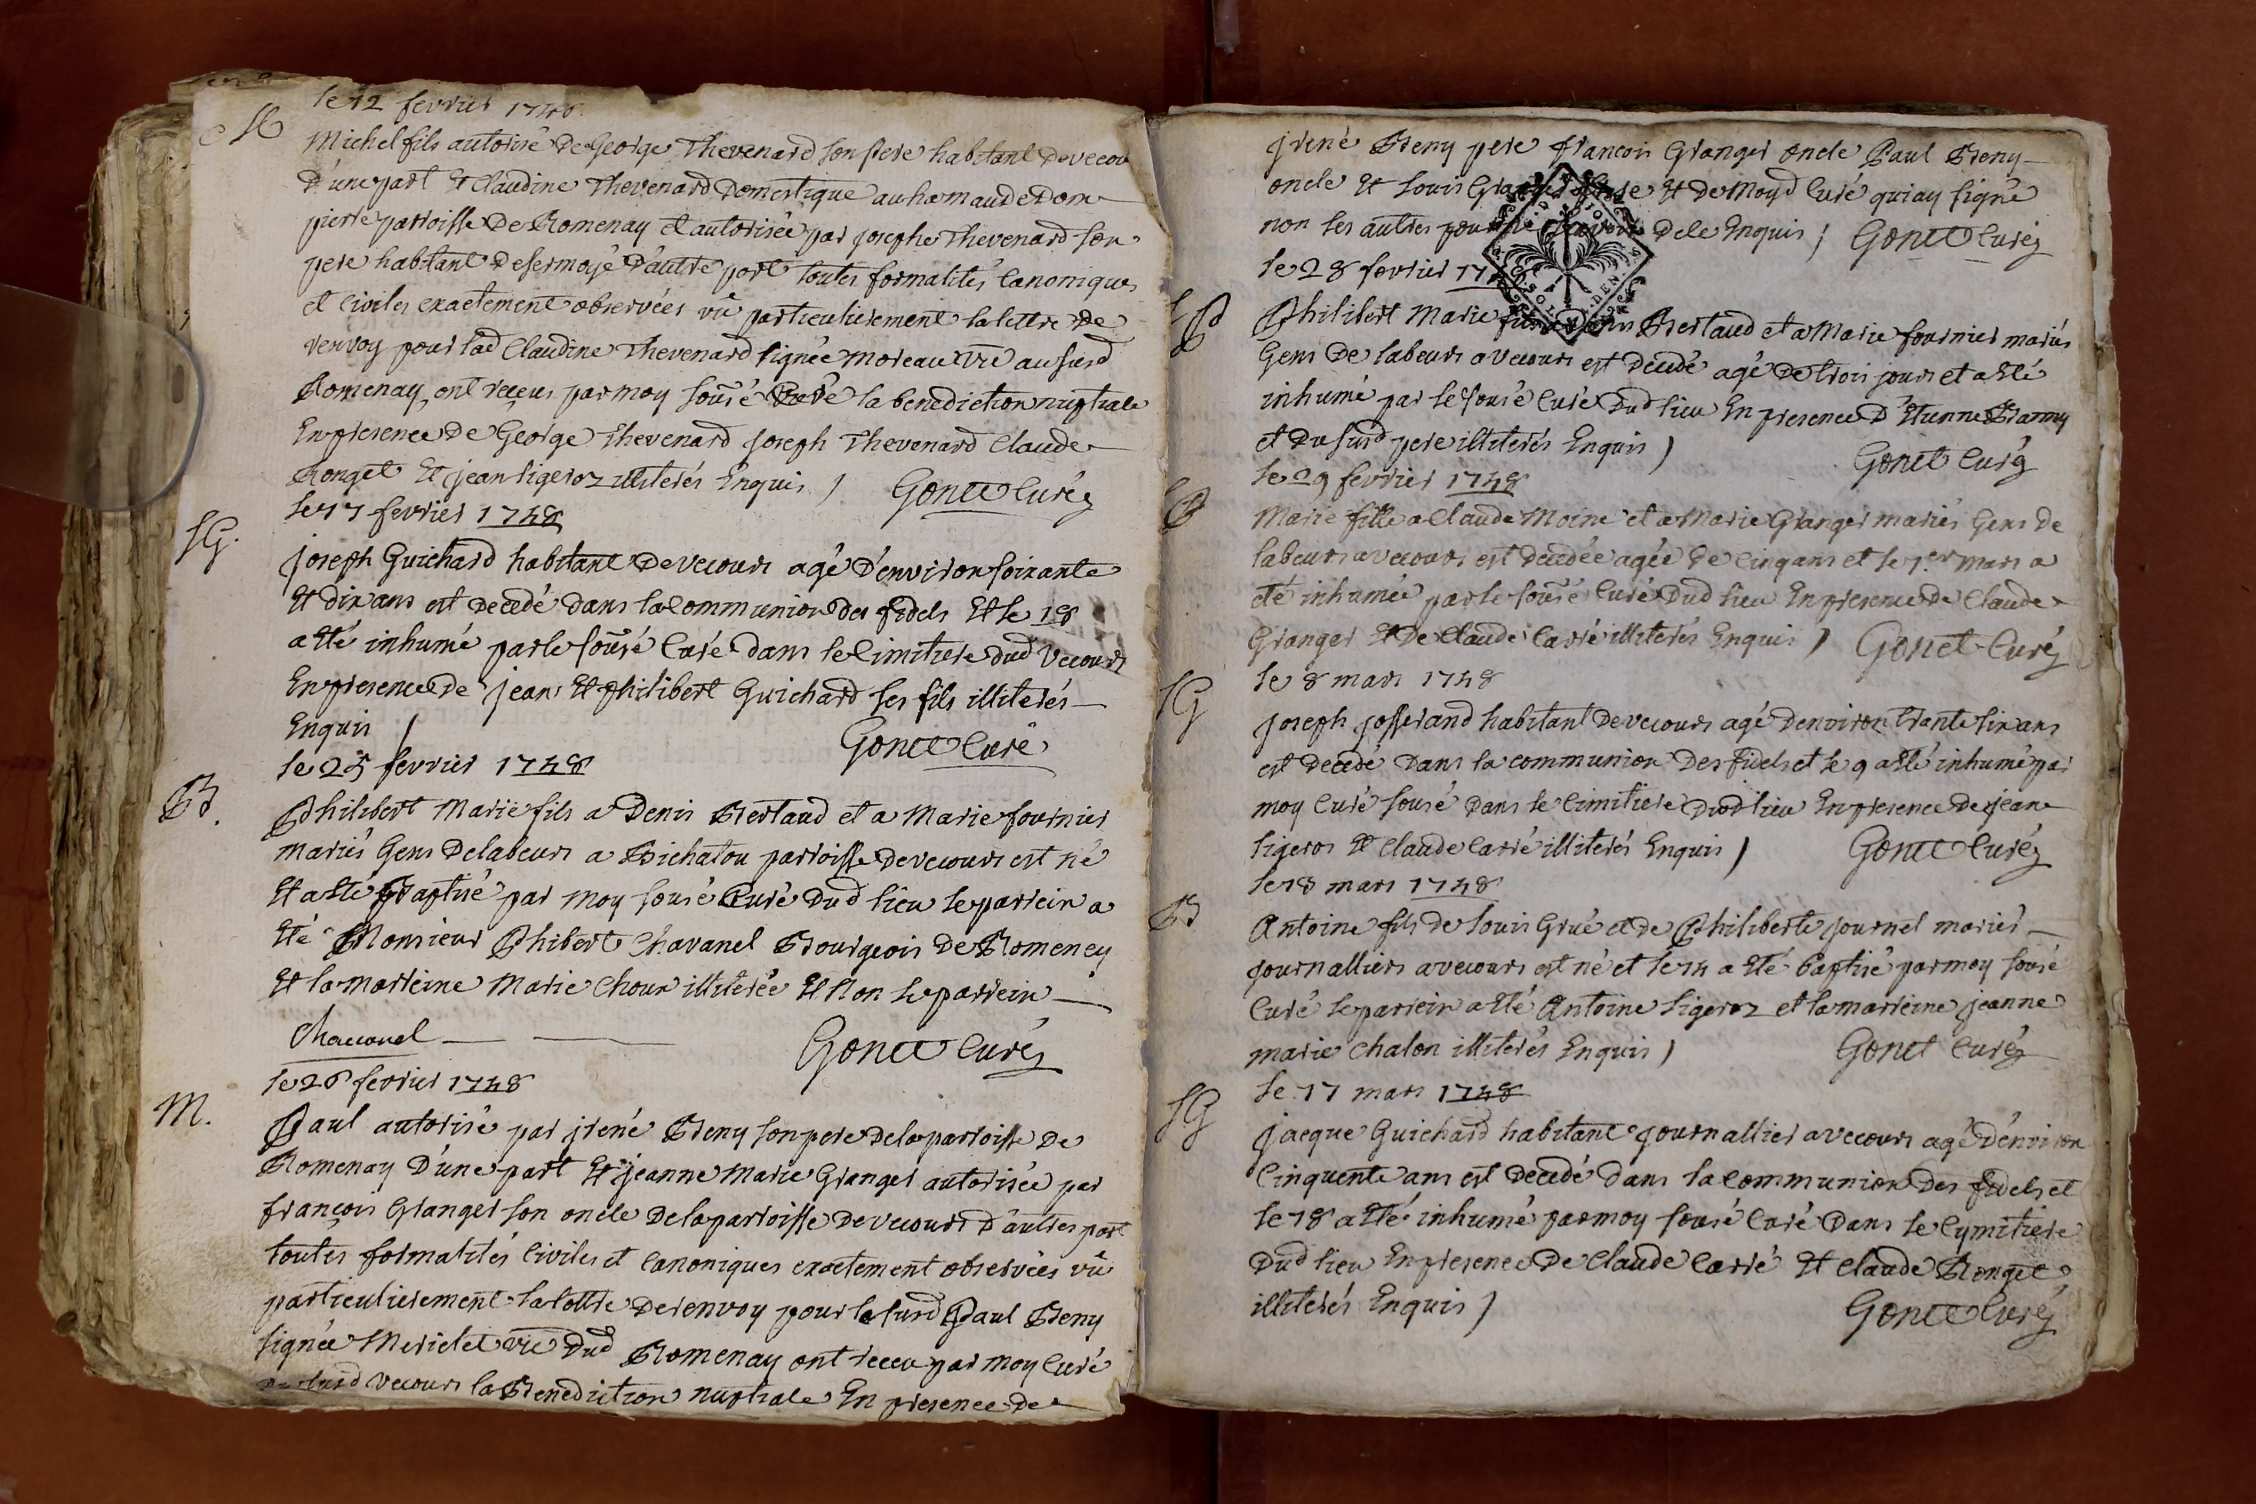 le 12 fevrier 1748
M
Michel fils autorisé de George Thevenard son pere habitant de vecou
d'une part et Claudine Thevenard Domestique au hamaude Dom
pierre parroisse De Romenay et autorisée par joseph Thevenard son
pere habitant de sermoyé D'autre part toutes formalités Canoniques
et Civiles exactement observées vû particulierement la lettre de
renvoy pour lad Claudine Thevenard signée moreau vre au susd
Romenay ont reçeus par moy sousé Curé la benediction nuptiale
En presence De George Thevenard joseph Thevenard Claude
Ronget Et jean ligeroz illiterés Enquis / Gonet Curé
le 17 fevrier 1748
SG.
joseph Guichard habitant de vecours agé d'environ soixante
Et dix ans est decedé dans la Communion des fidels Et le 18
a Eté inhumé par le sousé Curé dans le Cimitiere dud vecours
En presence de jean Et philibert Guichard ses fils illiterés
Enquis / Gonet Curé
le 25 fevrier 1748
B.
Philibert Marie fils a Denis Bertaud et a Marie fournier
mariés Gens De labeurs a Bichatou parroisse de vecours est né
Et a Eté Baptisé par moy sousé Curé Dud lieu le parrein a
Eté Monsieur Phibert Chavanel Bourgeois De Romeney
Et la marreine Marie Choux illiterée Et Non le parrein
Chavanel Gonet Curé
le 26 fevrier 1748
M.
Paul autorisé par jrené Beny son pere de la parroisse De
Romenay D'une part Et jeanne Marie Granger autorisée par
françois Granger son oncle De la parroisse De vecours d'autres part
toutes formalités Civiles et Canoniques exactement observées vû
particulierement la lettre De renvoy pour le susd Paul Beny
signée Mericlet vre Dud Romenay ont receu par moy Curé
susd vecours la Benediction nuptiale En presence de
jrené Beny pere françois Granger oncle Paul Beny
oncle Et Louis Granger Et De Moyd Curé qui ay signé
non les autres pour ne sçavoir dele Enquis / Gonet Curé
le 28 fevrier 1748
SP
Philibert Marie Bertaud et a Marie fournier mariés
Gens De labeurs a vecours est decedé agé De trois jours et a Eté
inhumé par le sousé Curé Dud lieu En presence D'Etienne
et Du susd pere illiterés Enquis / Gonet Curé
le 29 fevrier 1748
Marie fille a Claude Moine et a Marie Granger mariés Gens de
labeurs a vecours est decedée agée De Cinq ans et le 1.er mars a
eté inhumée par le sousé Curé Dud lieu En presence De Claude
Granger Et De Claude Carré illiterés Enquis / Gonet Curé
le 8 mars 1748
SG
joseph josserand habitant De vecours agé d'environ trante six ans
est decedé Dans la communion Des fidels et le 9 a Eté inhumé par
moy Curé sousé Dans le Cimitiere Dud lieu En presence De jean
ligeros Et Claude Carré illiterés Enquis / Gonet Curé
le 18 mars 1748
B
Antoine fils de Louis Grué et de Philiberte journet mariés
journalliers a vecours est né et le 14 a Eté Baptisé par moy sousé
Curé le parrein a Eté Antoine ligeroz et la marreine jeanne
marie Chalon illiterés Enquis / Gonet Curé
le 17 mars 1748
SG
jacque Guichard habitant journallier a vecours agé d'environ
Cinquente ans est decedé dans la communion Des fidels et
le 18 a Eté inhumé par moy sousé Curé Dans le Cymitiere
Dud lieu En presence De Claude Carré Et Claude Ronget
illiterés Enquis / Gonet Curé